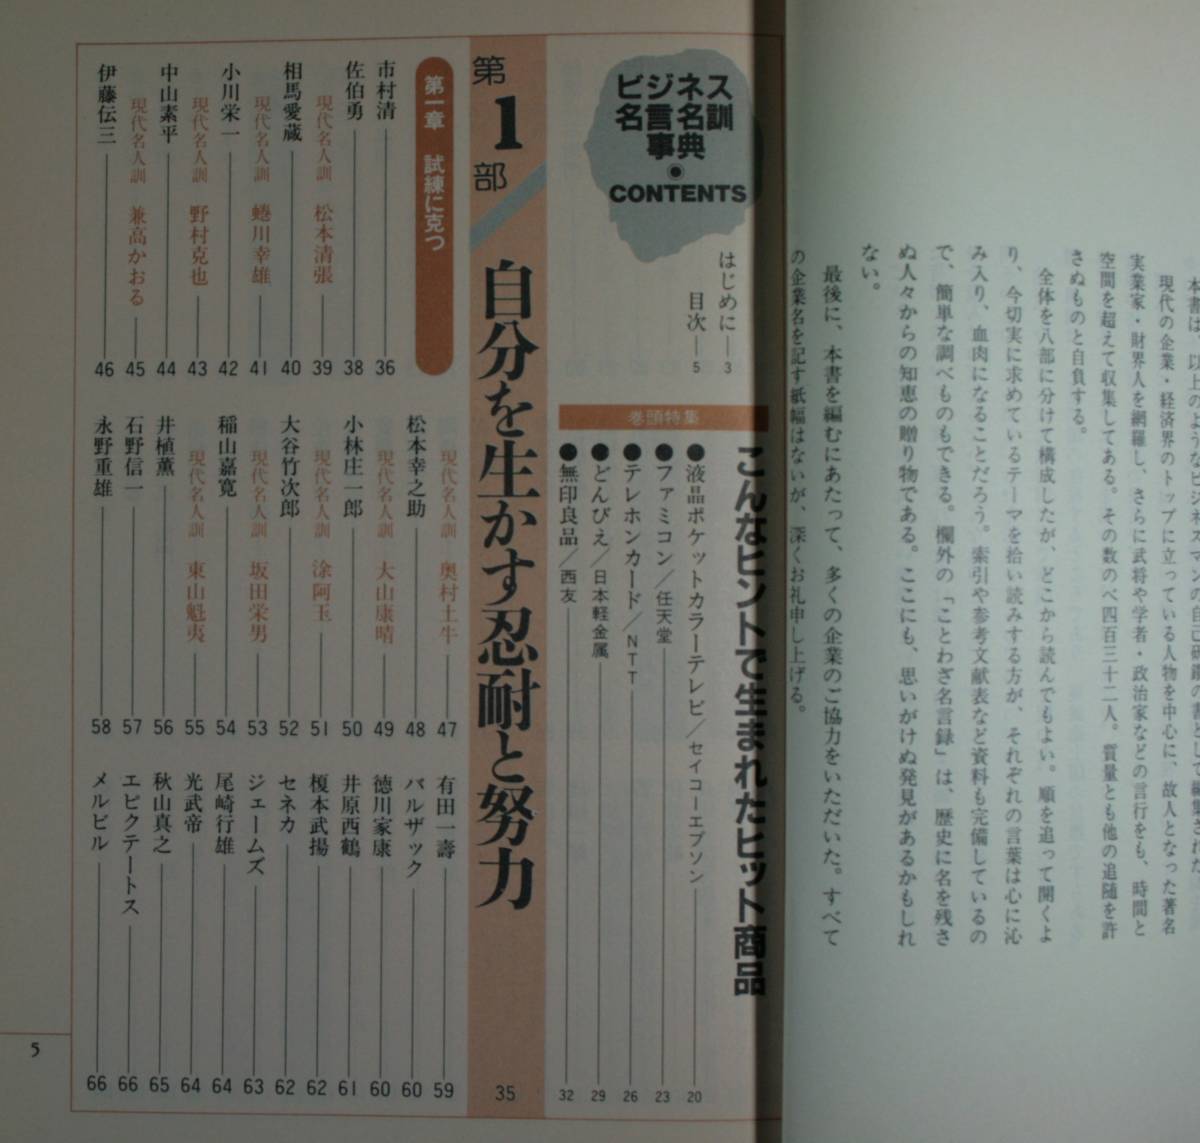 本書は、以上のようなビジネスマンの自己研鑽の書として編集された
現代の企業・経済界のトップに立っている人物を中心に、故人となった著名
実業家・財界人を網羅し、さらに武将や学者・政治家などの言行をも、時間と
空間を超えて収集してある。その数のべ四百三十二人。質量とも他の追随を許
さぬものと自負する。
全体を八部に分けて構成したが、どこから読んでもよい。順を追って開くよ
り、今切実に求めているテーマを拾い読みする方が、それぞれの言葉は心に沁
み入り、血肉になることだろう。索引や参考文献表など資料も完備しているの
で、簡単な調べものもできる。欄外の「ことわざ名言録」は、歴史に名を残さ
ぬ人々からの知恵の贈り物である。ここにも、思いがけぬ発見があるかもしれ
ない。
最後に、本書を編むにあたって、多くの企業のご協力をいただいた。すべて
の企業名を記す紙幅はないが、深くお礼申し上げる。
ビジネス
名言名訓
事典
CONTENTS
はじめに 3
目次 5
巻頭特集
こんなヒントで生まれたヒット商品
●液晶ポケットカラーテレビ/セイコーエプソン 20
●ファミコン/任天堂 23
●テレホンカード/NTT 26
●どんびえ/日本軽金属 29
●無印良品/西友 32
第1部 自分を生かす忍耐と努力 35
第一章 試練に克つ
市村清 36
佐伯勇 38
現代名人訓 松本清張 39
相馬愛蔵 40
現代名人訓 蜷川幸雄 41
小川栄一 42
現代名人訓 野村克也 43
中山素平 44
現代名人訓 兼高かおる 45
伊藤伝三 46
現代名人訓 奥村土牛 47
松本幸之助 48
現代名人訓 大山康晴 49
小林庄一郎 50
現代名人訓 涂阿玉 51
大谷竹次郎 52
現代名人訓 坂田栄男 53
稲山嘉寛 54
現代名人訓 東山魁夷 55
井植薫 56
石野信一 57
永野重雄 58
有田一壽 59
バルザック 60
徳川家康 60
井原西鶴 61
榎本武揚 62
セネカ 62
ジェームズ 63
尾崎行雄 64
光武帝 64
秋山真之 65
エピクテートス 66
メルビル 66
5